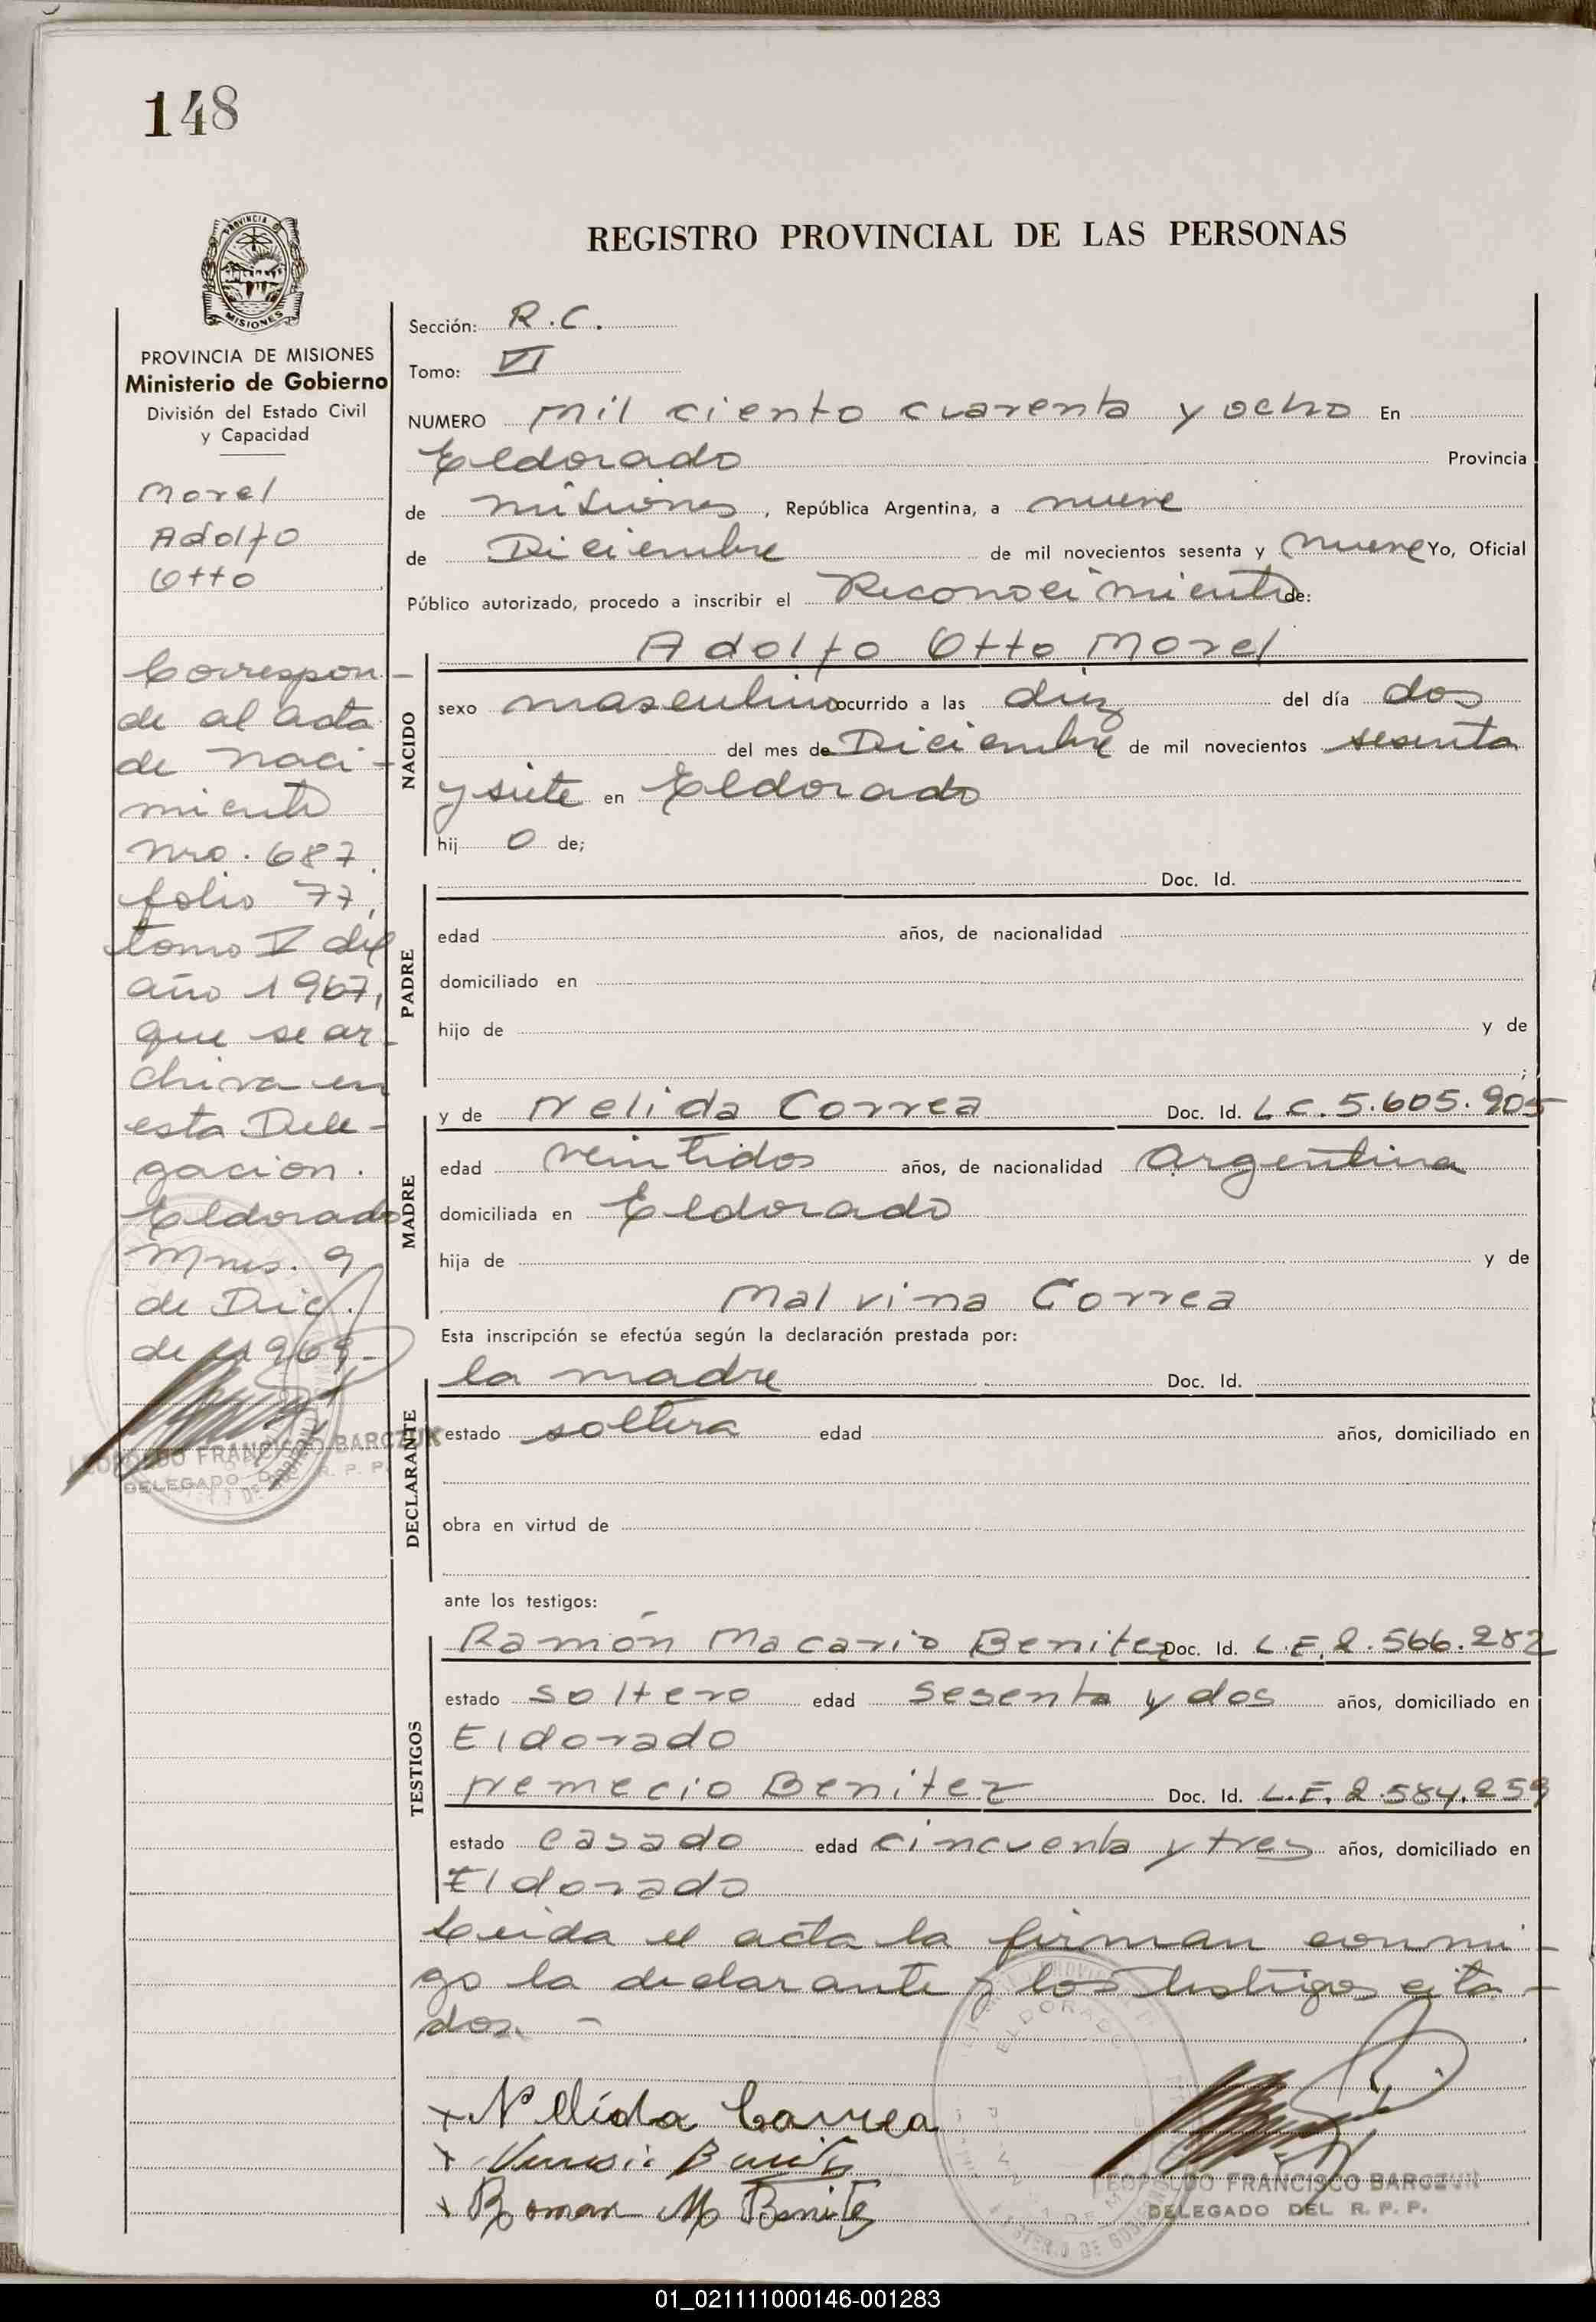 148
PROVINCIA DE
MISIONES
REGISTRO PROVINCIAL DE LAS PERSONAS
PROVINCIA DE MISIONES
Ministerio de Gobierno
División del Estado Civil
y Capacidad
Morel
Adolfo
Otto
Correspon-
de al acta
de naci-
miento
Nro. 687
folio 77,
tomo V del
año 1967,
que se ar-
chiva en
esta Dele-
gacion.
Eldorado
Mnes. 9
de Dic.
de 1969-
LEOPOLDO FRANCISCO BARCZUK
DELEGADO DEL R. P. P.
Sección: R.C.
Tomo: VI
NUMERO Mil ciento cuarenta y ocho En
Eldorado Provincia
de Misiones, República Argentina, a nueve
de Diciembre de mil novecientos sesenta y nueve Yo, Oficial
Público autorizado, procedo a inscribir el Reconocimiento de:
Adolfo Otto Morel
NACIDO
sexo masculino ocurrido a las diez del día dos
del mes de Diciembre de mil novecientos sesenta
y siete en Eldorado
hij o de;
PADRE
Doc. Id.
edad años, de nacionalidad
domiciliado en
hijo de y de
;
MADRE
y de Nelida Correa Doc. Id. L.C. 5.605.905
edad veintidos años, de nacionalidad Argentina
domiciliada en Eldorado
hija de y de
Malvina Correa
Esta inscripción se efectúa según la declaración prestada por:
DECLARANTE
la madre Doc. Id.
estado soltera edad años, domiciliado en
obra en virtud de
ante los testigos:
TESTIGOS
Ramón Macario Benitez Doc. Id. L.E. 2.566.282
estado soltero edad sesenta y dos años, domiciliado en
Eldorado
Nemecio Benitez Doc. Id. L.E. 2.584.259
estado casado edad cincuenta y tres años, domiciliado en
Eldorado
Leida el acta la firman conmi-
go la declarante y los testigos cita-
dos. -
ELDORADO
x Nellida Correa
x Benitez
x Roman M Benitez
LEOPOLDO FRANCISCO BARCZUK
DELEGADO DEL R. P. P.
01_021111000146-001283